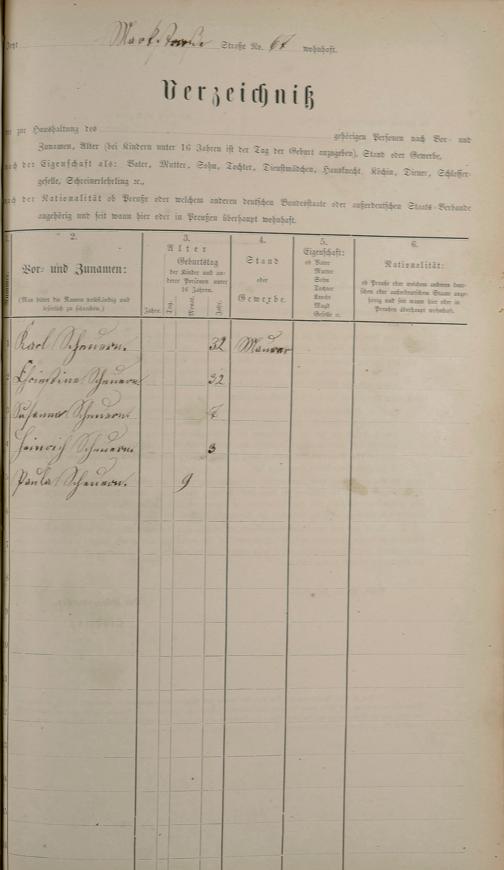 Jetzt Markstraße Straße No. 67 wohnhaft.
Verzeichniß
zur Haushaltung des gehörigen Personen nach Vor- und
Zunamen, Alter (bei Kindern unter 16 Jahren ist der Tag der Geburt anzugeben), Stand oder Gewerbe,
nach der Eigenschaft als: Vater, Mutter, Sohn, Tochter, Dienstmädchen, Hausknecht, Köchin, Diener, Schlosser-
geselle, Schreinerlehrling ꝛc.,
nach der Nationalität ob Preuße oder welchem anderen deutschen Bundesstaate oder außerdeutschen Staats-Verbande
angehörig und seit wann hier oder in Preußen überhaupt wohnhaft.
2.
Vor- und Zunamen:
(Man bittet die Namen vollständig und
leserlich zu schreiben.)
3.
Alter
Geburtstag
der Kinder und an-
derer Personen unter
16 Jahren.
Jahre. Tag. Monat. Jahr.
4.
Stand
oder
Gewerbe.
5.
Eigenschaft:
ob Vater
Mutter
Sohn
Tochter
Knecht
Magd
Geselle ꝛc.
6.
Nationalität:
ob Preuße oder welchem anderen deut-
schen oder außerdeutschen Staate ange-
hörig und seit wann hier oder in
Preußen überhaupt wohnhaft.
Karl Scheuern. 32 Maurer
Christine Scheuern 32
Susanna Scheuern. 7
Heinrich Scheuern. 3
Paula Scheuern. 9